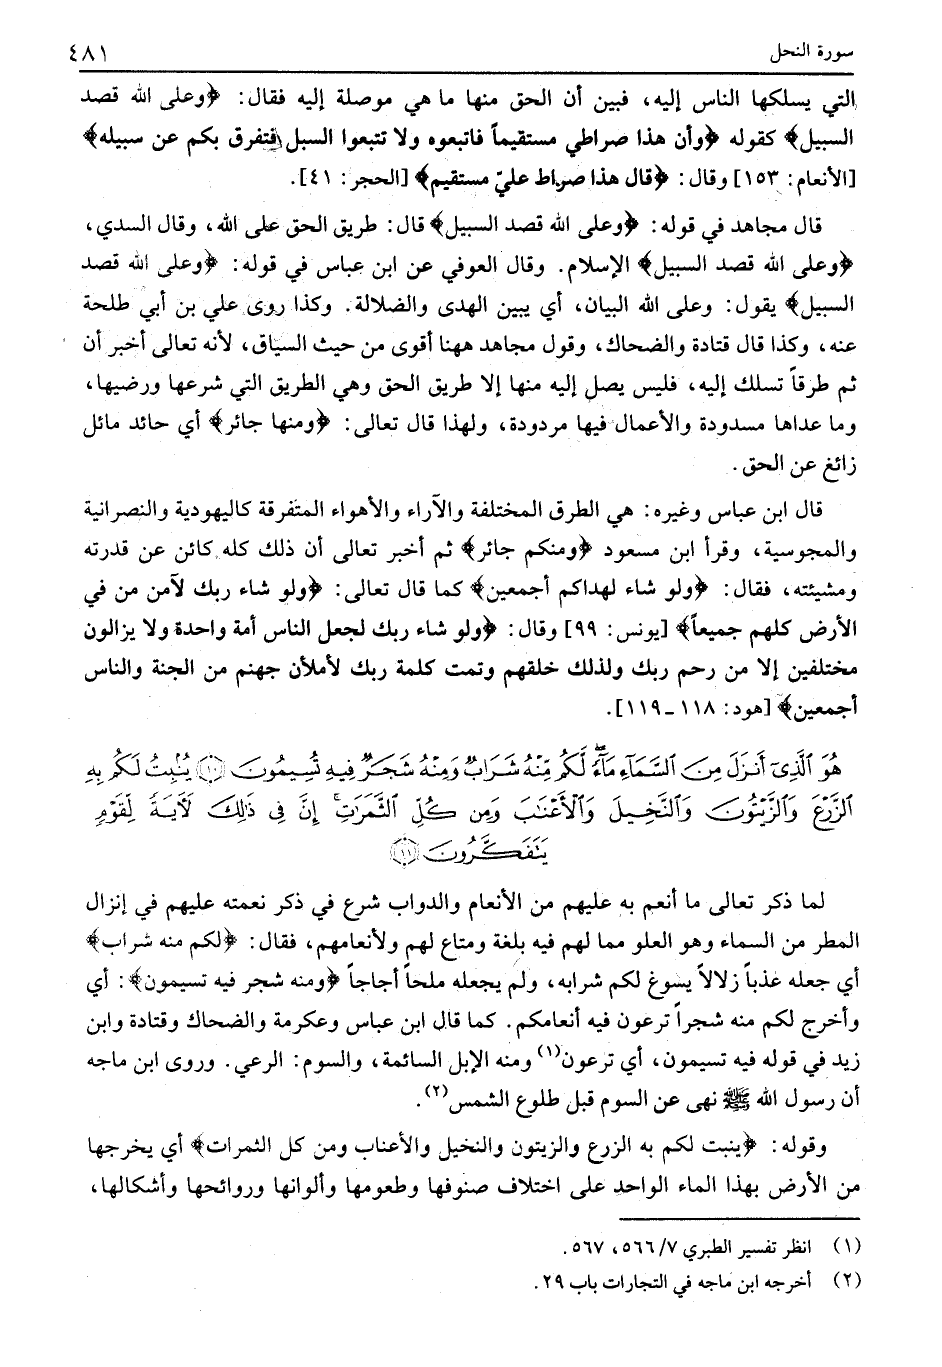 سورة النحل ٤٨١
التي يسلكها الناس إليه، فبين أن الحق منها ما هي موصلة إليه فقال: ﴿وعلى الله قصد
السبيل﴾ كقوله ﴿وأن هذا صراطي مستقيماً فاتبعوه ولا تتبعوا السبل فتفرق بكم عن سبيله﴾
[الأنعام: ١٥٣] وقال: ﴿قال هذا صراط عليّ مستقيم﴾ [الحجر: ٤١].
قال مجاهد في قوله: ﴿وعلى الله قصد السبيل﴾ قال: طريق الحق على الله، وقال السدي،
﴿وعلى الله قصد السبيل﴾ الإسلام. وقال العوفي عن ابن عباس في قوله: ﴿وعلى الله قصد
السبيل﴾ يقول: وعلى الله البيان، أي يبين الهدى والضلالة. وكذا روى علي بن أبي طلحة
عنه، وكذا قال قتادة والضحاك، وقول مجاهد ههنا أقوى من حيث السياق، لأنه تعالى أخبر أن
ثم طرقاً تسلك إليه، فليس يصل إليه منها إلا طريق الحق وهي الطريق التي شرعها ورضيها،
وما عداها مسدودة والأعمال فيها مردودة، ولهذا قال تعالى: ﴿ومنها جائر﴾ أي حائد مائل
زائغ عن الحق.
قال ابن عباس وغيره: هي الطرق المختلفة والآراء والأهواء المتفرقة كاليهودية والنصرانية
والمجوسية، وقرأ ابن مسعود ﴿ومنكم جائر﴾ ثم أخبر تعالى أن ذلك كله كائن عن قدرته
ومشيئته، فقال: ﴿ولو شاء لهداكم أجمعين﴾ كما قال تعالى: ﴿ولو شاء ربك لآمن من في
الأرض كلهم جميعاً﴾ [يونس: ٩٩] وقال: ﴿ولو شاء ربك لجعل الناس أمة واحدة ولا يزالون
مختلفين إلا من رحم ربك ولذلك خلقهم وتمت كلمة ربك لأملأن جهنم من الجنة والناس
أجمعين﴾ [هود: ١١٨ ـ ١١٩].
هُوَ ٱلَّذِىٓ أَنزَلَ مِنَ ٱلسَّمَآءِ مَآءً ۖ لَّكُم مِّنْهُ شَرَابٌ وَمِنْهُ شَجَرٌ فِيهِ تُسِيمُونَ ﴿١٠﴾ يُنۢبِتُ لَكُم بِهِ
ٱلزَّرْعَ وَٱلزَّيْتُونَ وَٱلنَّخِيلَ وَٱلْأَعْنَٰبَ وَمِن كُلِّ ٱلثَّمَرَٰتِ ۗ إِنَّ فِى ذَٰلِكَ لَءَايَةً لِّقَوْمٍ
يَتَفَكَّرُونَ ﴿١١﴾
لما ذكر تعالى ما أنعم به عليهم من الأنعام والدواب شرع في ذكر نعمته عليهم في إنزال
المطر من السماء وهو العلو مما لهم فيه بلغة ومتاع لهم ولأنعامهم، فقال: ﴿لكم منه شراب﴾
أي جعله عذباً زلالاً يسوغ لكم شرابه، ولم يجعله ملحاً أجاجاً ﴿ومنه شجر فيه تسيمون﴾: أي
وأخرج لكم منه شجراً ترعون فيه أنعامكم. كما قال ابن عباس وعكرمة والضحاك وقتادة وابن
زيد في قوله فيه تسيمون، أي ترعون(١) ومنه الإبل السائمة، والسوم: الرعي. وروى ابن ماجه
أن رسول الله ﷺ نهى عن السوم قبل طلوع الشمس(٢).
وقوله: ﴿ينبت لكم به الزرع والزيتون والنخيل والأعناب ومن كل الثمرات﴾ أي يخرجها
من الأرض بهذا الماء الواحد على اختلاف صنوفها وطعومها وألوانها وروائحها وأشكالها،
(١) انظر تفسير الطبري ٧/ ٥٦٦، ٥٦٧.
(٢) أخرجه ابن ماجه في التجارات باب ٢٩.